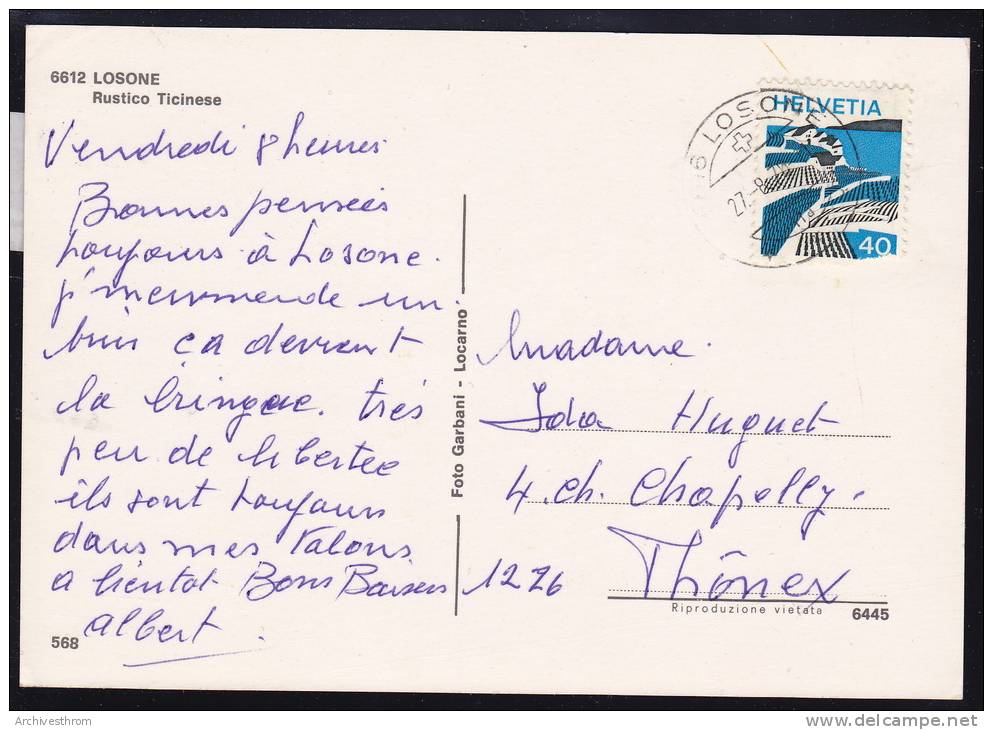 6612 LOSONE
Rustico Ticinese
Vendredi 8 heures
Bonnes pensées
toujours à Losone.
j'
ça devient
la
très
peu de libertée
ils sont toujours
dans mes talons
a bientot Bons Baisers
albert.
568
Foto Garbani - Locarno
LOSONE
27.-8
HELVETIA
40
Madame.
Ida Huguet
4. ch. Chapelly.
1226 Thônex
Riproduzione vietata
6445
Archivesthrom
www.delcampe.net